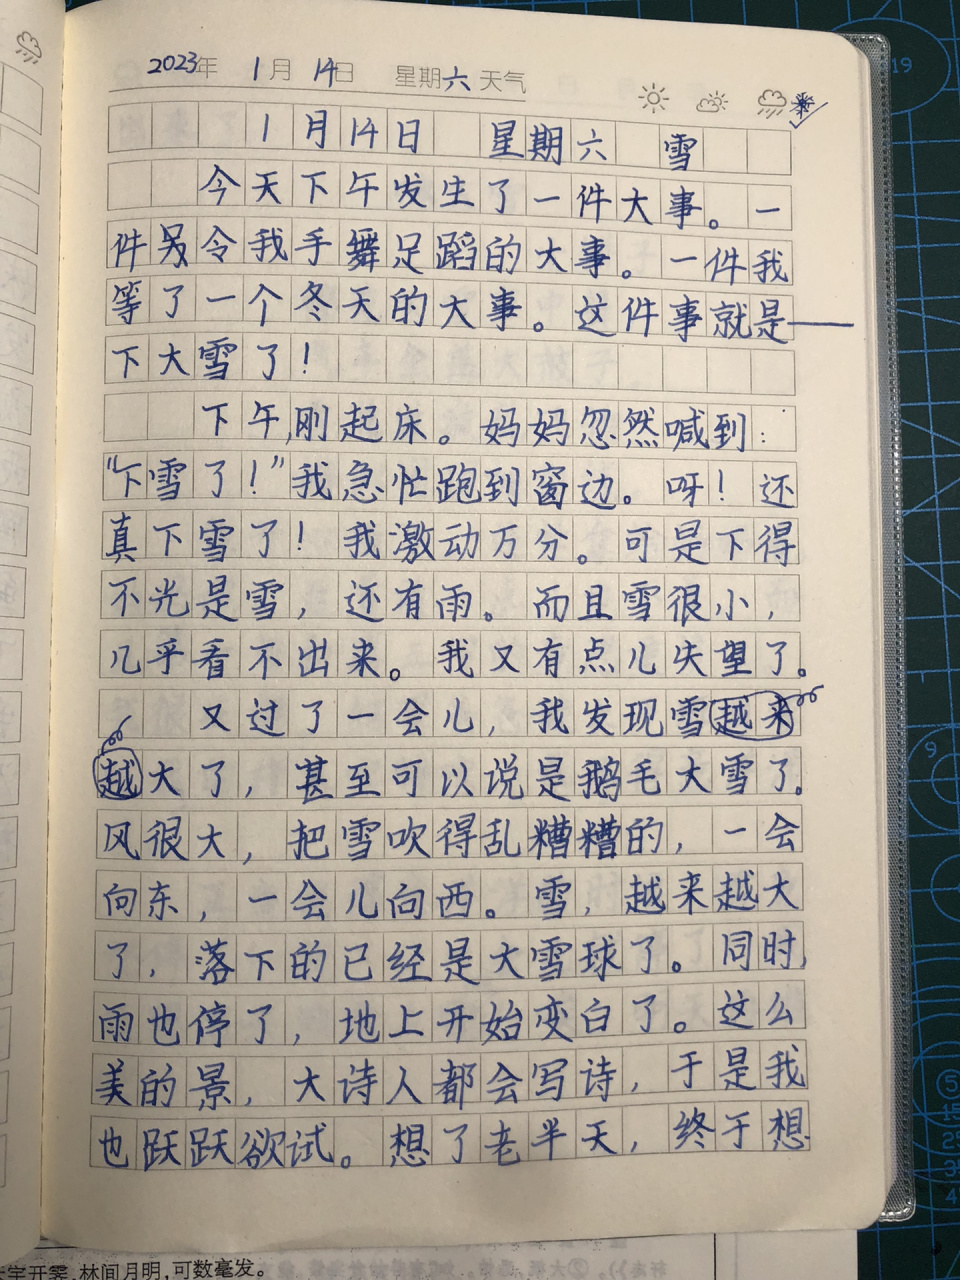 2023年 1月 14日 星期六 天气
1月14日 星期六 雪
今天下午发生了一件大事。一
件另令我手舞足蹈的大事。一件我
等了一个冬天的大事。这件事就是——
下大雪了！
下午,刚起床。妈妈忽然喊到：
“下雪了！”我急忙跑到窗边。呀！还
真下雪了！我激动万分。可是下得
不光是雪，还有雨。而且雪很小，
几乎看不出来。我又有点儿失望了。
又过了一会儿，我发现雪越来
越大了，甚至可以说是鹅毛大雪了。
风很大，把雪吹得乱糟糟的，一会
向东，一会儿向西。雪，越来越大
了，落下的已经是大雪球了。同时，
雨也停了，地上开始变白了。这么
美的景，大诗人都会写诗，于是我
也跃跃欲试。想了老半天，终于想
宇开霁，林间月明，可数毫发。